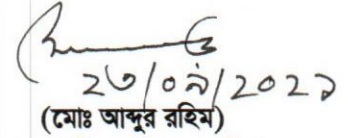 ২৩/০৯/২০২১
(মোঃ আব্দুর রহিম)